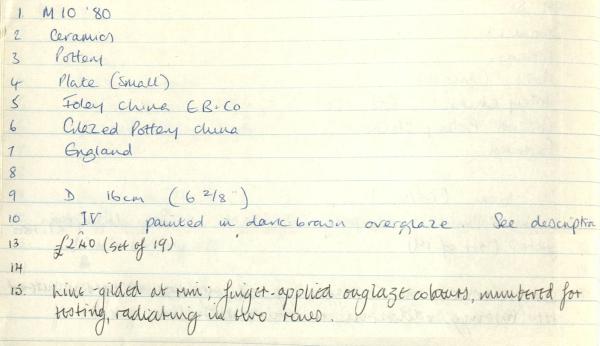 1 M10 '80
2 Ceramics
3 Pottery
4 Plate (small)
5 Foley China E.B.Co
6 Glazed Pottery China
7 England
8
9 D 16cm (6 2/8")
10 IV painted in dark brown overglaze. See description
13 £240 (set of 19)
14
15. Line-gilded at rim; finger-applied onglaze colours, numbered for
testing, radiating in two rows.